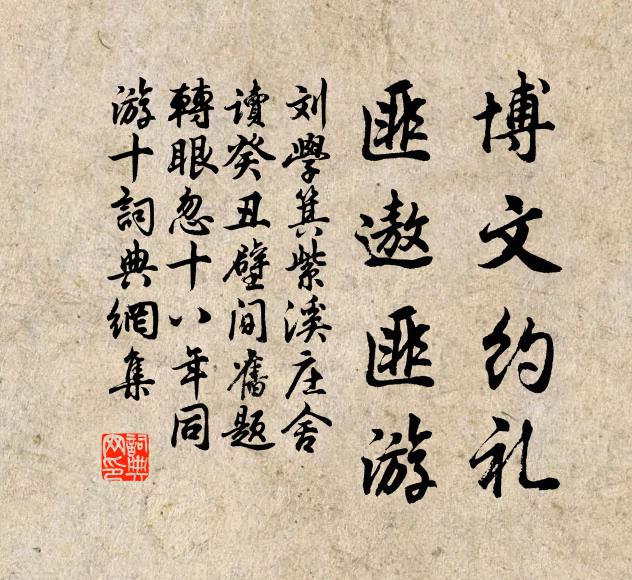 博文约礼
匪遨匪游
刘學箕紫溪庄舍
读癸丑壁间舊题
轉眼忽十八年同
游十詞典網集
詞典
网印